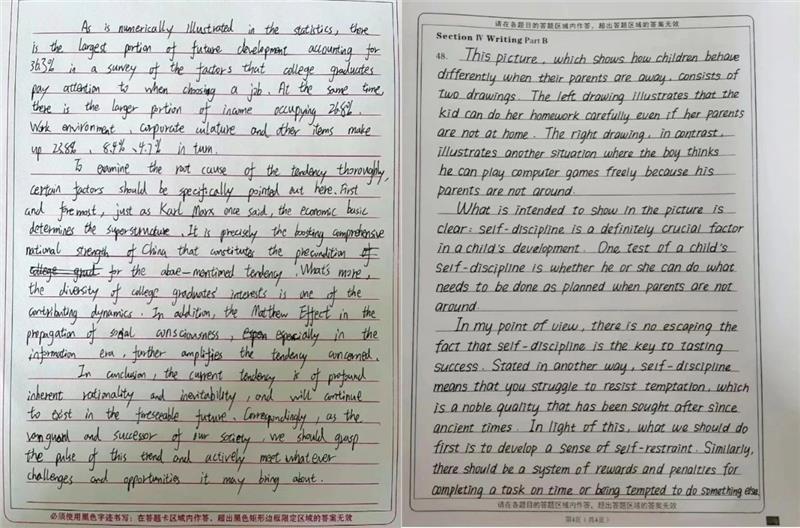 As is numerically illustrated in the statistics, there
is the largest portion of future development accounting for
36.3% in a survey of the factors that college graduates
pay attention to when choosing a job. At the same time,
there is the larger portion of income occupying 26.8%.
Work environment, corporate culature and other items make
up 23.8%、8.4%、4.7% in turn.
To examine the root cause of the tendency thoroughly,
certain factors should be specifically pointed out here. First
and foremost, just as Karl Marx once said, the economic basic
determines the superstructure. It is precisely the boosting comprehensive
national strength of China that constitutes the precondition of
college grad for the above-mentioned tendency. What's more,
the diversity of college graduates' interests is one of the
contributing dynamics. In addition, the Matthew Effect in the
propagation of social consciousness, especially in the
information era, further amplifies the tendency concerned.
In conclusion, the current tendency is of profound
inherent rationality and inevitability, and will continue
to exist in the foreseable future. Correspondingly, as the
vanguard and successor of our society, we should grasp
the pulse of this trend and actively meet whatever
challenges and opportunities it may bring about.
必须使用黑色字迹书写;在答题卡区域内作答,超出黑色矩形边框限定区域的答案无效
请在各题目的答题区域内作答,超出答题区域的答案无效
Section IV Writing Part B
48. This picture, which shows how children behave
differently when their parents are away, consists of
two drawings. The left drawing illustrates that the
kid can do her homework carefully even if her parents
are not at home. The right drawing, in contrast,
illustrates another situation where the boy thinks
he can play computer games freely because his
parents are not around.
What is intended to show in the picture is
clear: self-discipline is a definitely crucial factor
in a child's development. One test of a child's
self-discipline is whether he or she can do what
needs to be done as planned when parents are not
around.
In my point of view, there is no escaping the
fact that self-discipline is the key to tasting
success. Stated in another way, self-discipline
means that you struggle to resist temptation, which
is a noble quality that has been sought after since
ancient times. In light of this, what we should do
first is to develop a sense of self-restraint. Similarly,
there should be a system of rewards and penalties for
completing a task on time or being tempted to do something else.
请在各题目的答题区域内作答,超出答题区域的答案无效
第4页(共4页)